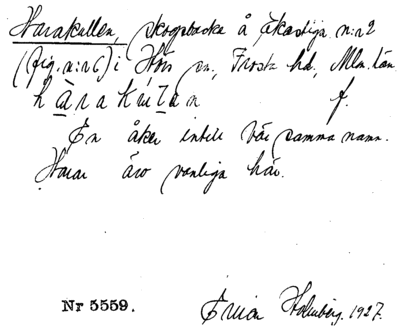 Harakullen, skogsbacke å Åkastiga n:r 2
(fig. n:r 6) i Hörs sn, Frosta hd, Mlm. län.
hàrakúlan f.
En åker intill bär samma namn.
Harar äro vanliga här.
Nr 5559. Holmberg. 1927.